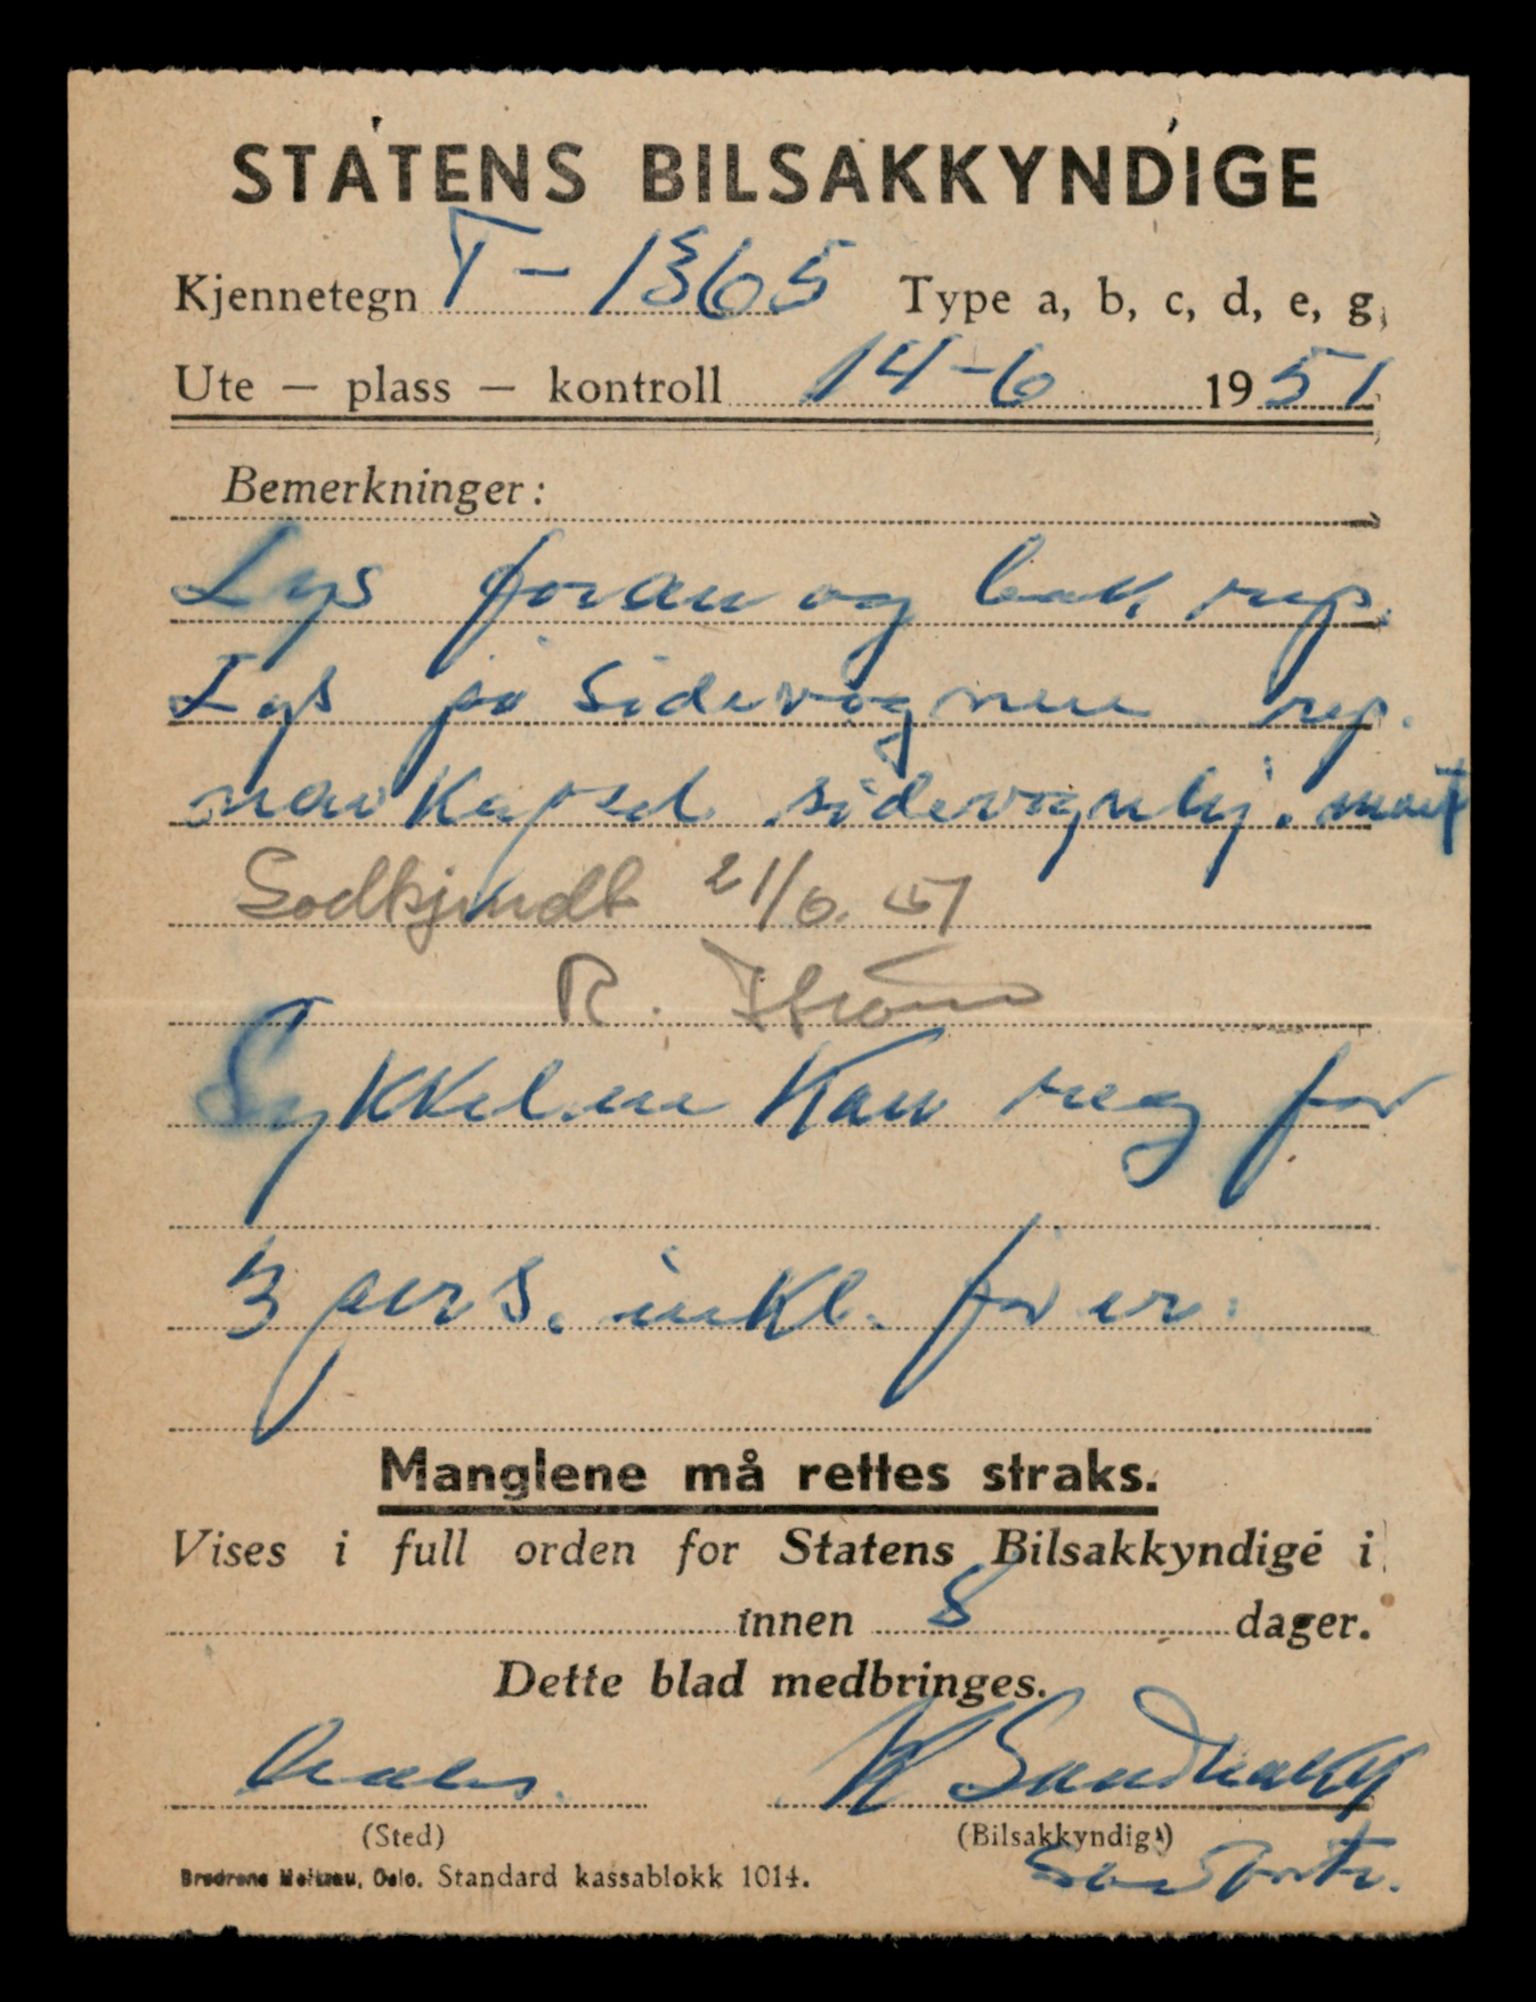 STATENS BILSAKKYNDIGE
Kjennetegn T-1365 Type a, b, c, d, e, g,
Ute — plass — kontroll 14-6 1951
Bemerkninger:
Lys foran og bak rep.
Lys på sidevognen rep.
navkapsel sidevognhj. mont
Godkjendt 21/6. 51
R.
Sykkelen kan reg for
3 pers. inkl. fører.
Manglene må rettes straks.
Vises i full orden for Statens Bilsakkyndige i
innen 8 dager.
Dette blad medbringes.
(Sted)
(Bilsakkyndig)
Brødrene Meltzau, Oslo. Standard kassablokk 1014.